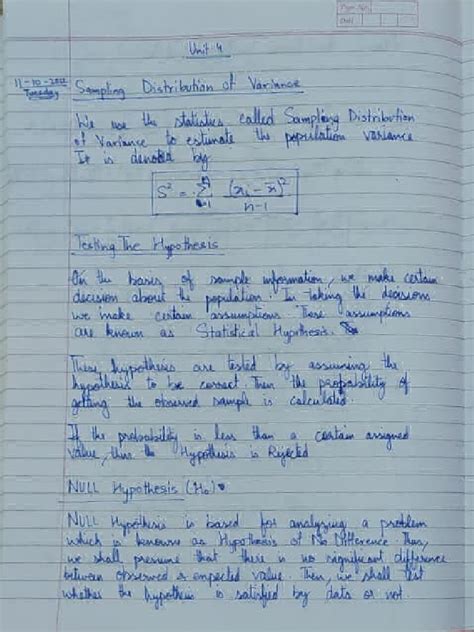 Unit 4
Tuesday
Sampling Distribution of Variance
We use the statistics called Sampling Distribution
of Variance to estimate the population variance
It is denoted by
S² = Σ (xi - x̄)² / n-1
Testing The Hypothesis
On the basis of sample information, we make certain
decision about the population. In taking the decisions
we make certain assumptions. These assumptions
are known as Statistical Hypothesis.
These hypothesis are tested by assuming the
hypothesis to be correct. Then the probability of
getting the observed sample is calculated.
If the probability is less than a certain assigned
value, then the Hypothesis is Rejected
NULL Hypothesis (H₀)
NULL Hypothesis is based for analyzing a problem
which is known as Hypothesis of No Difference. Thus,
we shall presume that there is no significant difference
between observed & expected value. Then, we shall test
whether the hypothesis is satisfied by data or not.